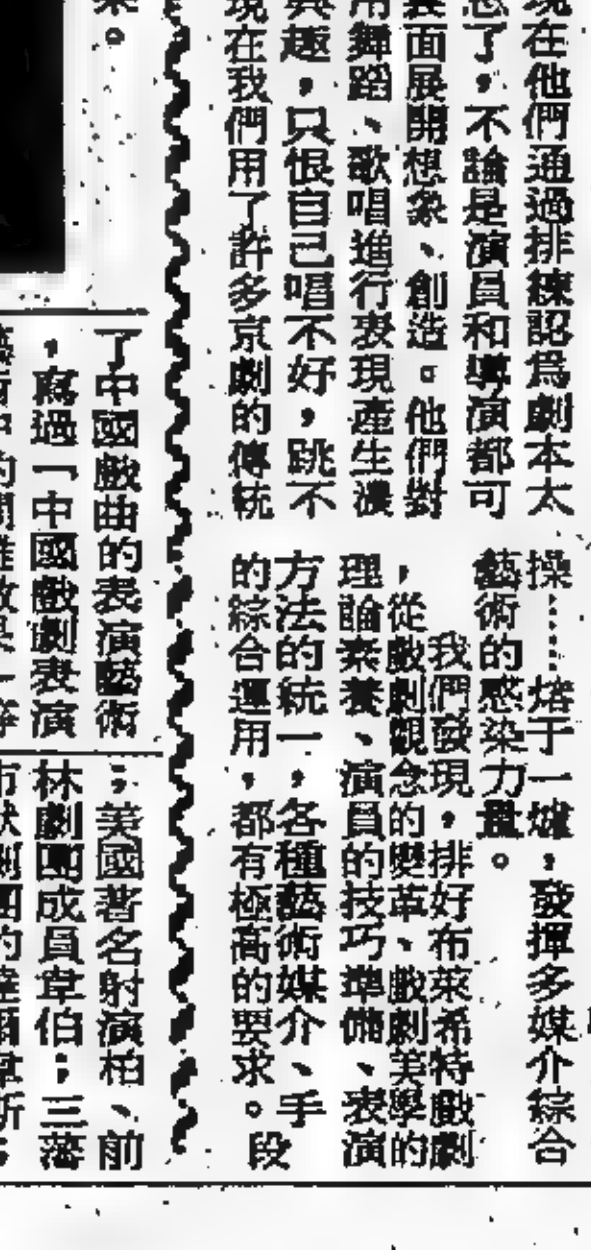 現在他們通過排練認爲劇本太
忽了，不論是演員和導演都可
裏面展開想象、創造。他們對
用舞蹈、歌唱進行表現產生濃
興趣，只恨自己唱不好，跳不
現在我們用了許多京劇的傳統
操……熔于一爐，發揮多媒介綜合
藝術的感染力量。
我們發現，排好布萊希特戲劇
，從戲劇觀念的變革、戲劇美學的
理論素養、演員的技巧準備、表演
方法的統一，各種藝術媒介、手
的綜合運用，都有極高的要求。段
了中國戲曲的表演藝術
，寫過一中國戲劇表演
；美國著名射演柏、前
林劇團成員韋伯；三藩